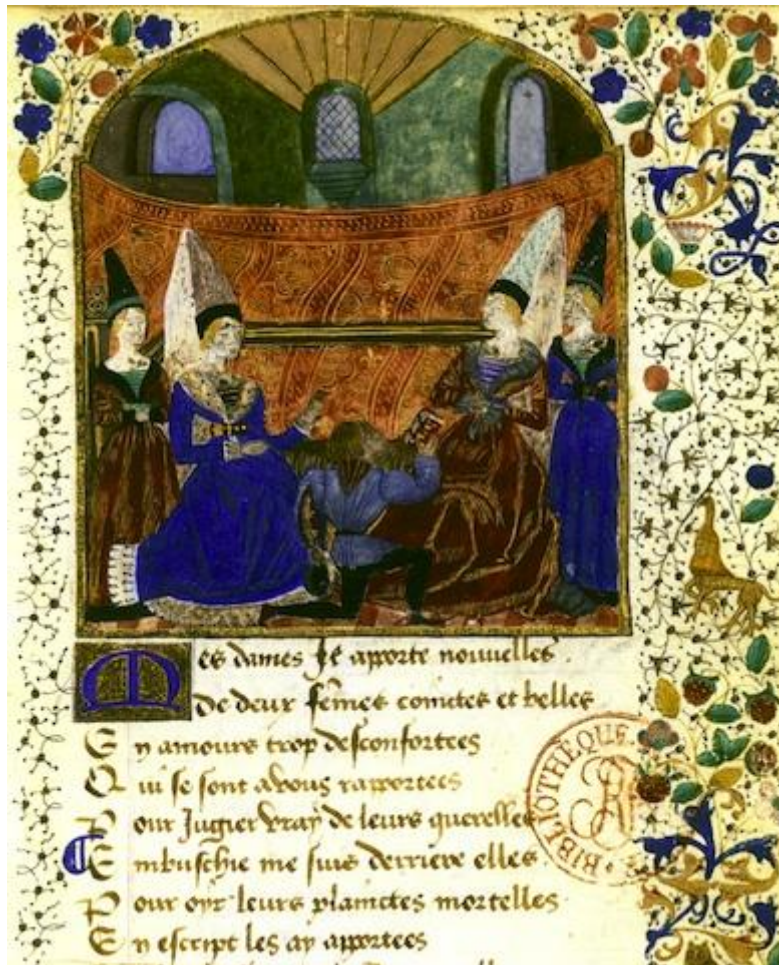 Mes dames je apporte nouuelles
De deux fēmes cointes et belles
En amours trop desconfortees
Qui se sont a vous rapportees
Pour Jugier vray de leurs querelles
Embuschie me suis derriere elles
Pour oyr leurs plainctes mortelles
En escript les ay apportees
BIBLIOTHÈQUE